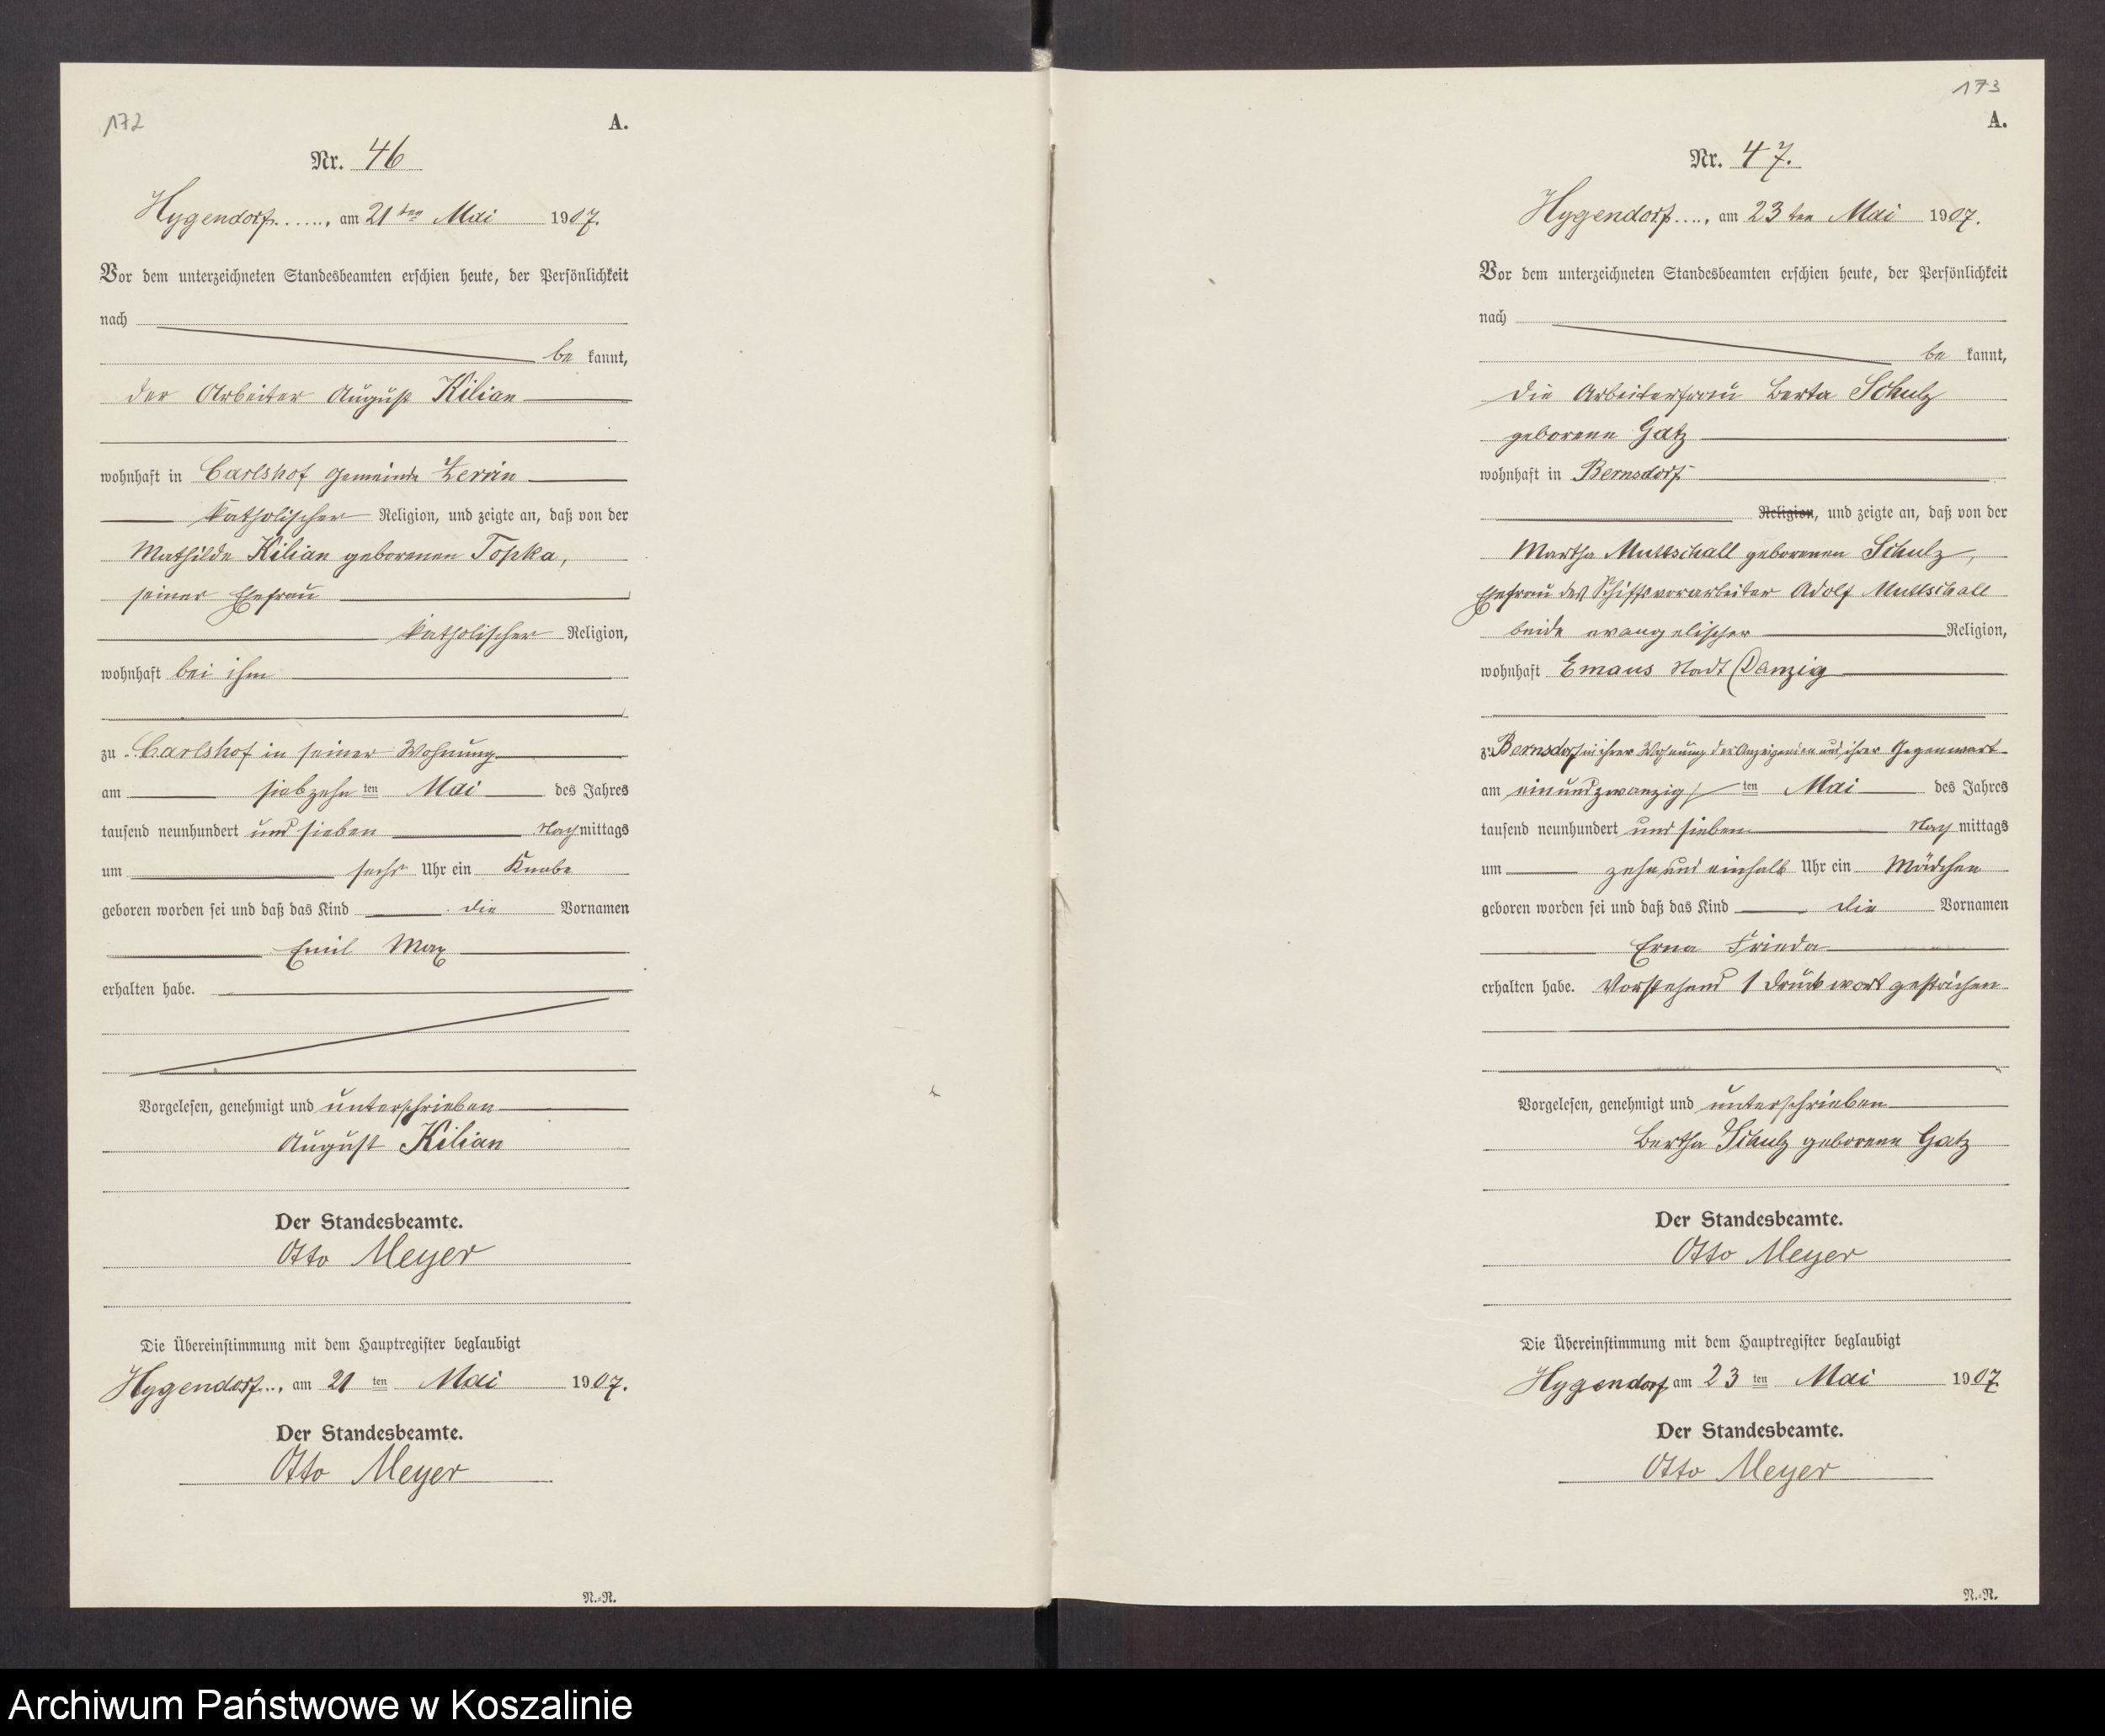 172
A.
Nr. 46
Hygendorf......, am 21ten Mai 1907.
Vor dem unterzeichneten Standesbeamten erschien heute, der Persönlichkeit
nach
be kannt,
der Arbeiter August Kilian
wohnhaft in Carlshof Gemeinde Zerrin
katholischer Religion, und zeigte an, daß von der
Mathilde Kilian geborenen Topka,
seiner Ehefrau
katholischer Religion,
wohnhaft bei ihm
zu Carlshof in seiner Wohnung
am siebzehn ten Mai des Jahres
tausend neunhundert und sieben Nachmittags
um sechs Uhr ein Knabe
geboren worden sei und daß das Kind die Vornamen
Emil Max
erhalten habe.
Vorgelesen, genehmigt und unterschrieben
August Kilian
Der Standesbeamte.
Otto Meyer
Die Übereinstimmung mit dem Hauptregister beglaubigt
Hygendorf..., am 21 ten Mai 1907.
Der Standesbeamte.
Otto Meyer
N.=N.
173
A.
Nr. 47.
Hygendorf...., am 23ten Mai 1907.
Vor dem unterzeichneten Standesbeamten erschien heute, der Persönlichkeit
nach
be kannt,
die Arbeiterfrau Berta Schulz
geborene Gatz
wohnhaft in Bernsdorf
Religion, und zeigte an, daß von der
Martha Muttschall geborenen Schulz,
Ehefrau des Schiffsvorarbeiter Adolf Muttschall
beide evangelischer Religion,
wohnhaft Emaus Stadt Danzig
zu Bernsdorf in ihrer Wohnung der Anzeigenden und ihrer Gegenwart
am einundzwanzig ten Mai des Jahres
tausend neunhundert und sieben Nach mittags
um zehn und einhalb Uhr ein Mädchen
geboren worden sei und daß das Kind die Vornamen
Erna Frieda
erhalten habe. Vorstehend 1 Druckwort gestrichen
Vorgelesen, genehmigt und unterschrieben
Bertha Schulz geborene Gatz
Der Standesbeamte.
Otto Meyer
Die Übereinstimmung mit dem Hauptregister beglaubigt
Hygendorf am 23 ten Mai 1907
Der Standesbeamte.
Otto Meyer
N.=N.
Archiwum Państwowe w Koszalinie